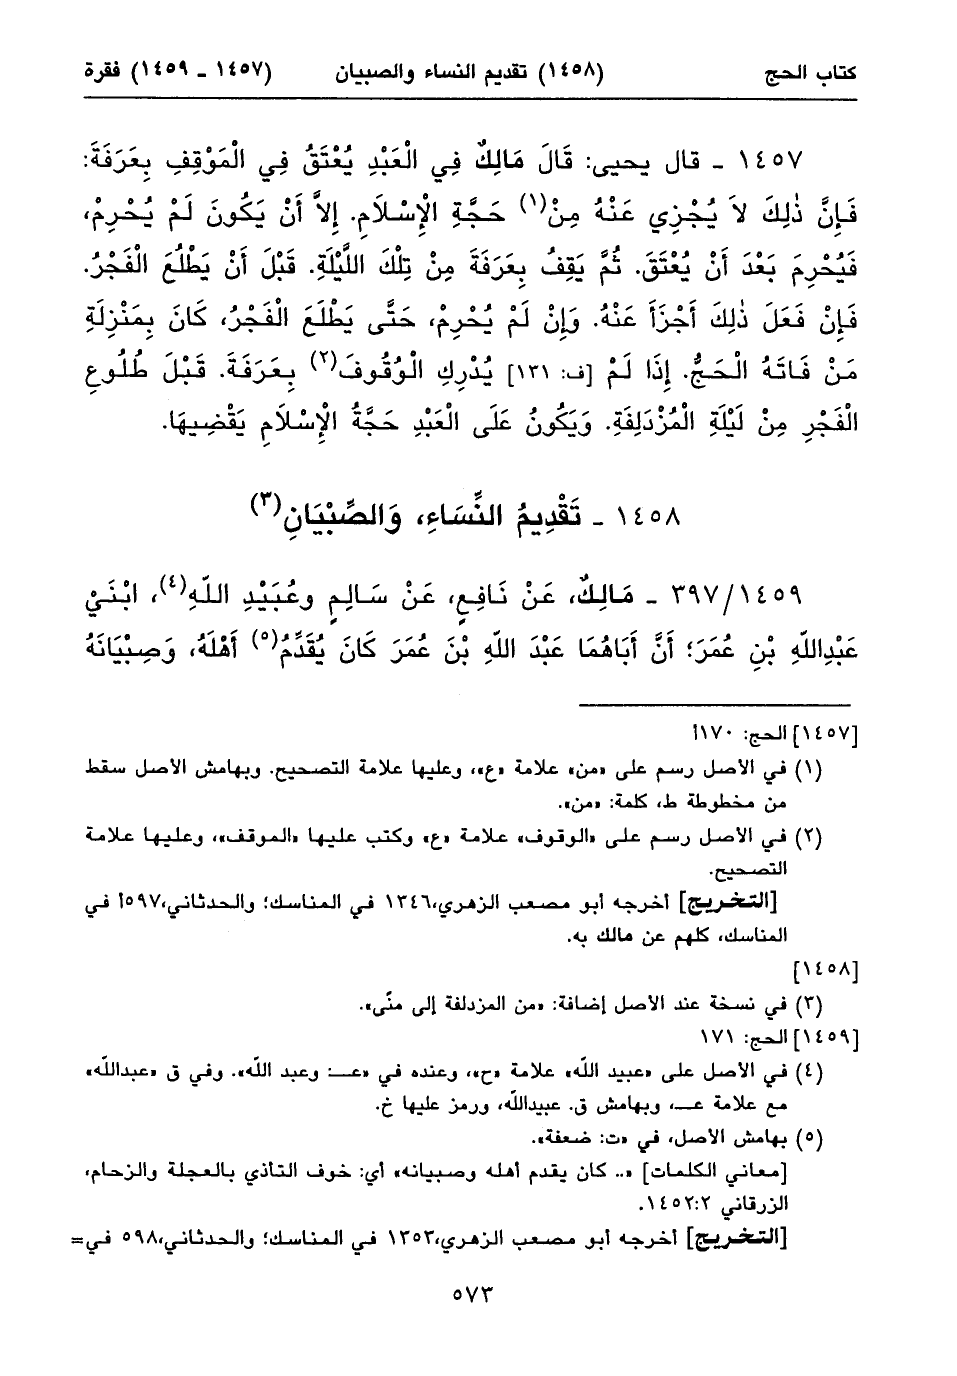 كتاب الحج (١٤٥٨) تقديم النساء والصبيان (١٤٥٧ ـ ١٤٥٩) فقرة
١٤٥٧ ـ قال يحيى: قَالَ مَالِكٌ فِي الْعَبْدِ يُعْتَقُ فِي الْمَوْقِفِ بِعَرَفَةَ:
فَإِنَّ ذٰلِكَ لاَ يُجْزِي عَنْهُ مِنْ(١) حَجَّةِ الْإِسْلَامِ. إِلاَّ أَنْ يَكُونَ لَمْ يُحْرِمْ،
فَيُحْرِمَ بَعْدَ أَنْ يُعْتَقَ. ثُمَّ يَقِفُ بِعَرَفَةَ مِنْ تِلْكَ اللَّيْلَةِ. قَبْلَ أَنْ يَطْلُعَ الْفَجْرُ.
فَإِنْ فَعَلَ ذٰلِكَ أَجْزَأَ عَنْهُ. وَإِنْ لَمْ يُحْرِمْ، حَتَّى يَطْلَعَ الْفَجْرُ، كَانَ بِمَنْزِلَةِ
مَنْ فَاتَهُ الْحَجُّ. إِذَا لَمْ [ف: ١٣١] يُدْرِكِ الْوُقُوفَ(٢) بِعَرَفَةَ. قَبْلَ طُلُوعِ
الْفَجْرِ مِنْ لَيْلَةِ الْمُزْدَلِفَةِ. وَيَكُونُ عَلَى الْعَبْدِ حَجَّةُ الْإِسْلَامِ يَقْضِيهَا.
١٤٥٨ ـ تَقْدِيمُ النِّسَاءِ، وَالصِّبْيَانِ(٣)
٣٩٧/١٤٥٩ ـ مَالِكٌ، عَنْ نَافِعٍ، عَنْ سَالِمٍ وعُبَيْدِ اللّٰهِ(٤)، ابْنَيْ
عَبْدِاللّٰهِ بْنِ عُمَرَ؛ أَنَّ أَبَاهُمَا عَبْدَ اللّٰهِ بْنَ عُمَرَ كَانَ يُقَدِّمُ(٥) أَهْلَهُ، وَصِبْيَانَهُ
[١٤٥٧] الحج: ١٧٠أ
(١) في الأصل رسم على «من» علامة «ع»، وعليها علامة التصحيح. وبهامش الأصل سقط
من مخطوطة ط، كلمة: «من».
(٢) في الأصل رسم على «الوقوف» علامة «ع» وكتب عليها «الموقف»، وعليها علامة
التصحيح.
[التخريج] أخرجه أبو مصعب الزهري،١٣٤٦ في المناسك؛ والحدثاني،٥٩٧أ في
المناسك، كلهم عن مالك به.
[١٤٥٨]
(٣) في نسخة عند الأصل إضافة: «من المزدلفة إلى منًى».
[١٤٥٩] الحج: ١٧١
(٤) في الأصل على «عبيد اللّٰه» علامة «ح»، وعنده في «عـ: وعبد اللّٰه». وفي ق «عبداللّٰه»
مع علامة عـ، وبهامش ق. عبيداللّٰه، ورمز عليها خ.
(٥) بهامش الأصل، في «ت: ضعفة».
[معاني الكلمات] «.. كان يقدم أهله وصبيانه» أي: خوف التأذي بالعجلة والزحام،
الزرقاني ١٤٥٢:٢.
[التخريج] أخرجه أبو مصعب الزهري،١٣٥٣ في المناسك؛ والحدثاني،٥٩٨ في=
٥٧٣